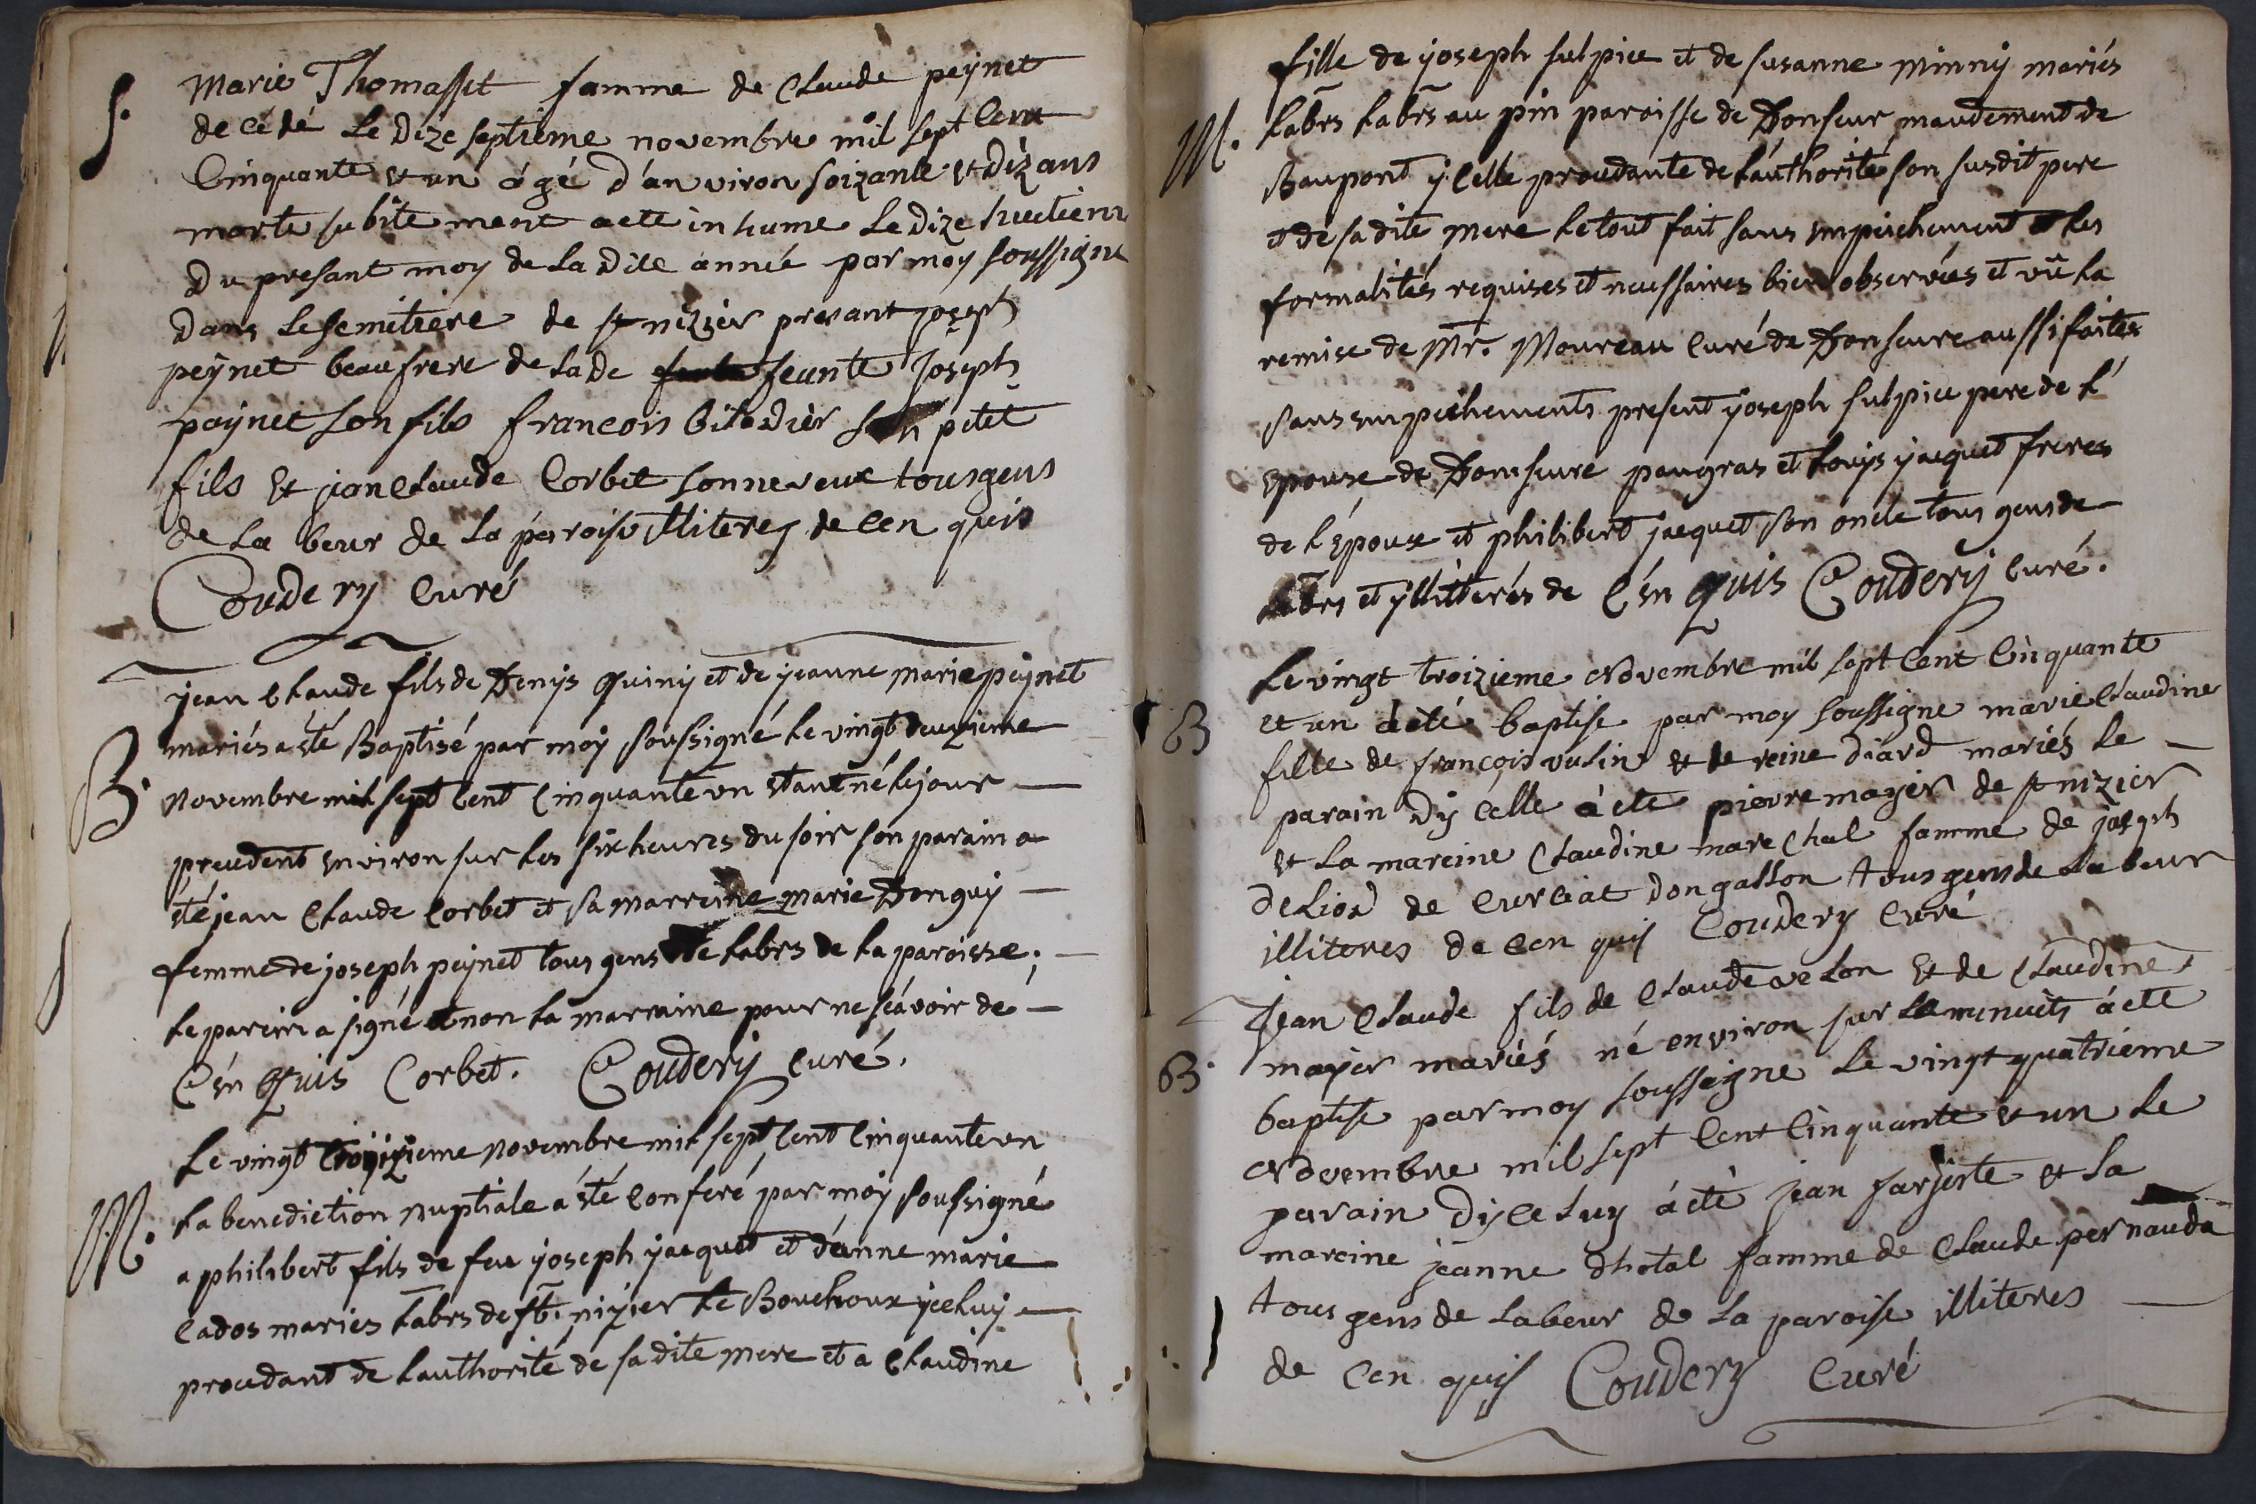 S.
Marie Thomasset famme de Claude peÿnet
de cédé Le dize septieme novembre mil sept Cent
Cinquante et un ágé d'anviron soizante et diz ans
morte subite ment aeté in hume Le dize huctiem
Du presant moy de La dite année par moy soussigne
Dans Le semetiere de st nizier presant joseph
peÿnet beaufrere de La de feunte joseph
paÿnet son fils francois bitadier son petit
fils Et jean Claude Corbet son neveux tous gens
de La beur de La paroise illiterez de Cen quis
Coudery Curé
B.
jean Claude fils de Denÿs quinÿ et de jeanne marie peÿnet
mariés a été Baptisé par moÿ soussigné le vingt deuxieme
novembre mil sept cent Cinquante un étant né le jour
precedent environ sur les six heures du soir son parain a
été jean Claude Corbet et sa marreine marie Donguÿ
femme de joseph peÿnet tous gens de Labrs de la paroisse,
le parein a signé et non la marraine pour ne scávoir de
C'en quis Corbet. Couderÿ Curé.
M.
Le vingt troizieme novembre mil sept cent Cinquante un
la benediction nuptiale a été Conferé par moÿ soussigné
a philibert fils de feu joseph jacquet et d'anne marie
Cados mariés labrs de st. nizier le Bouchoux ÿceluÿ
procedant de l'authorité de sa dite mere et a Claudine
M.
fille de joseph sulpice et de susanne minnÿ mariés
labrs labrs au pin paroisse de Donseur mandement de
Baupont ÿcelle procedante de l'authorité son susdit pere
et de sa dite mere le tout fait sans empeichement les
formalités requises et necessaires bien observées et vû la
remise de Mr. Moureau Curé de Donseure aussi faites
sans empeichements present joseph sulpice pere de l'
epouse de Donseure pangras et louÿs jacquet freres
de l'epoux et philibert jacquet son oncle tous gens de
labrs et ÿllitterés de C'en quis Couderÿ Curé.
B
Le vingt troizieme Novembre mil sept Cent Cinquante
et un áeté baptise par moy soussigne marie Claudine
fille de françois vulin et de reine diard mariés Le
parain dÿ celle áete pierre mayer de st nizier
et La mareine Claudine mare Chal famme de joseph
deLiod de Curciat dongallon tous gens de La beur
illiteres de Cen quis Coudery Curé
B.
Jean Claude fils de Claude velon et de Claudine
mayer mariés né environ sur La minuits áeté
baptise par moy soussigne Le vingt quatrieme
Novembre mil sept Cent Cinquante et un Le
parain dÿ celuy áeté jean farjerte et La
mareine jeanne dhotal famme de Claude pernauda
tous gens de Labeur de La paroise illiteres
de Cen quis Coudery Curé